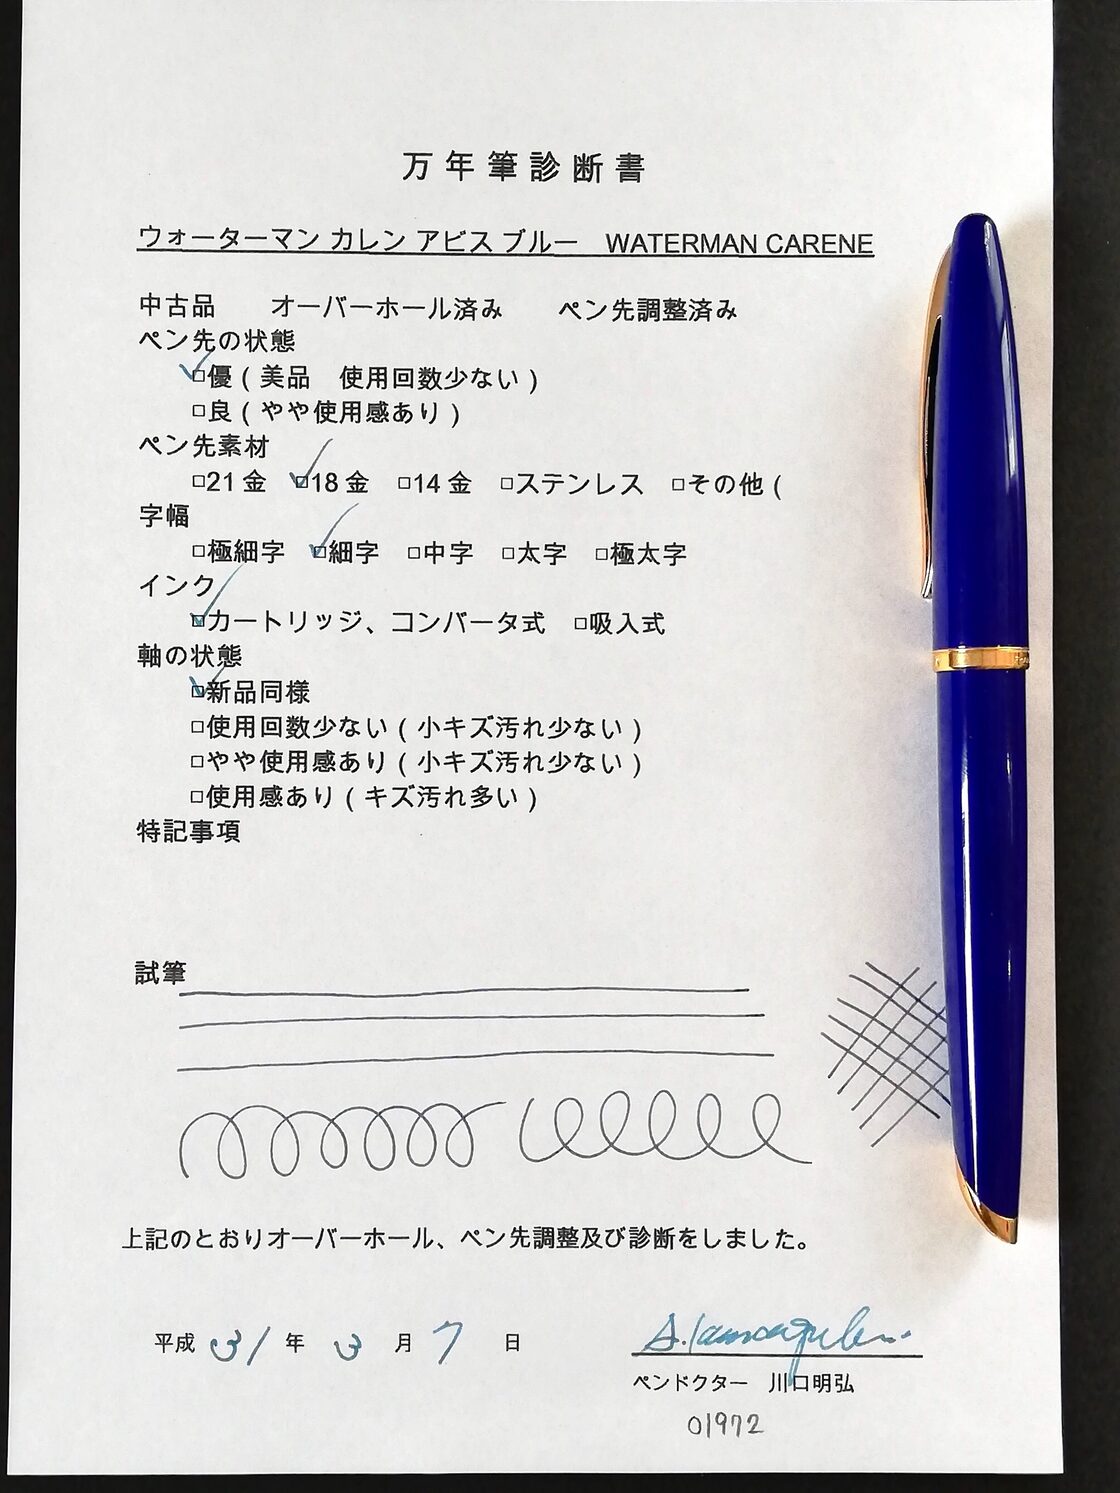 万年筆診断書
ウォーターマン カレン アビス ブルー　WATERMAN CARENE
中古品　　オーバーホール済み　　ペン先調整済み
ペン先の状態
☑優（美品　使用回数少ない）
□良（やや使用感あり）
ペン先素材
□21金　☑18金　□14金　□ステンレス　□その他（
字幅
□極細字　☑細字　□中字　□太字　□極太字
インク
☑カートリッジ、コンバータ式　□吸入式
軸の状態
☑新品同様
□使用回数少ない（小キズ汚れ少ない）
□やや使用感あり（小キズ汚れ少ない）
□使用感あり（キズ汚れ多い）
特記事項
試筆
上記のとおりオーバーホール、ペン先調整及び診断をしました。
平成 31 年 3 月 7 日
ペンドクター　川口明弘
01972